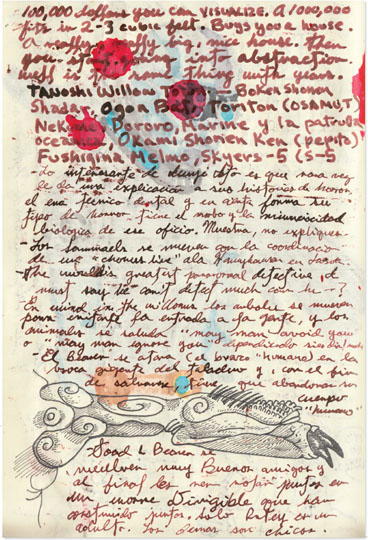 100,000 dollars you can VISUALIZE. A 1,000,000
fits in 2-3 cubic feet. Buys you a house.
A really big, nice house. then
you going into abstraction.
same thing with years.
TAWOSHI Willow Boken Shonen
Shadar Ogon Bat Toriton (OSAMU T)
Dororo, Marine y la patrulla
oceanica Kawami Shonen Ken (pepito)
Fushigina Melmo, Skyers-5 (S-5
- Lo interesante de es que rara vez
le da una explicacion a sus historias de horror
el era tecnico dental y en cierta forma su
tipo de horror tiene el morbo y la minuciosidad
biologica de ese oficio. Muestra, no explique.
- Los se mueven con la coordinacion
de un "chorus line" a la
- The world's greatest paranormal detective,
must say "I can't detect much
- En wind in the willows los arboles se mueven
para enseñarle la entrada a la gente y los
animales se saludan "may man avoid you"
o "may man ignore you"
- El Beaver se atora (el brazo "humano") en la
boca gigante del y, con el fin
de salvarse tiene que abandonar su
cuerpo
"humano"
Toad & Beaver se
vuelven muy Buenos amigos y
al final les ven volar juntos en
un enorme Dirigible que han
construido juntos. Solo Ratty es un
adulto. Los demas son chicos.